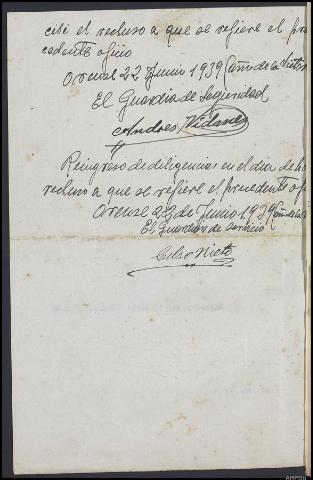 cibí el recluso a que se refiere el pre
cedente oficio
Orense 22 Junio 1939 (año de la Victor
El Guardia de Seguridad
Andres Vidanes
Reingreso de diligencias en el dia de ho
recluso a que se refiere el precedente ofi
Orense 22 de Junio 1939 (año de la
El Guardian de servicio
Celso Nieto
AHPOU